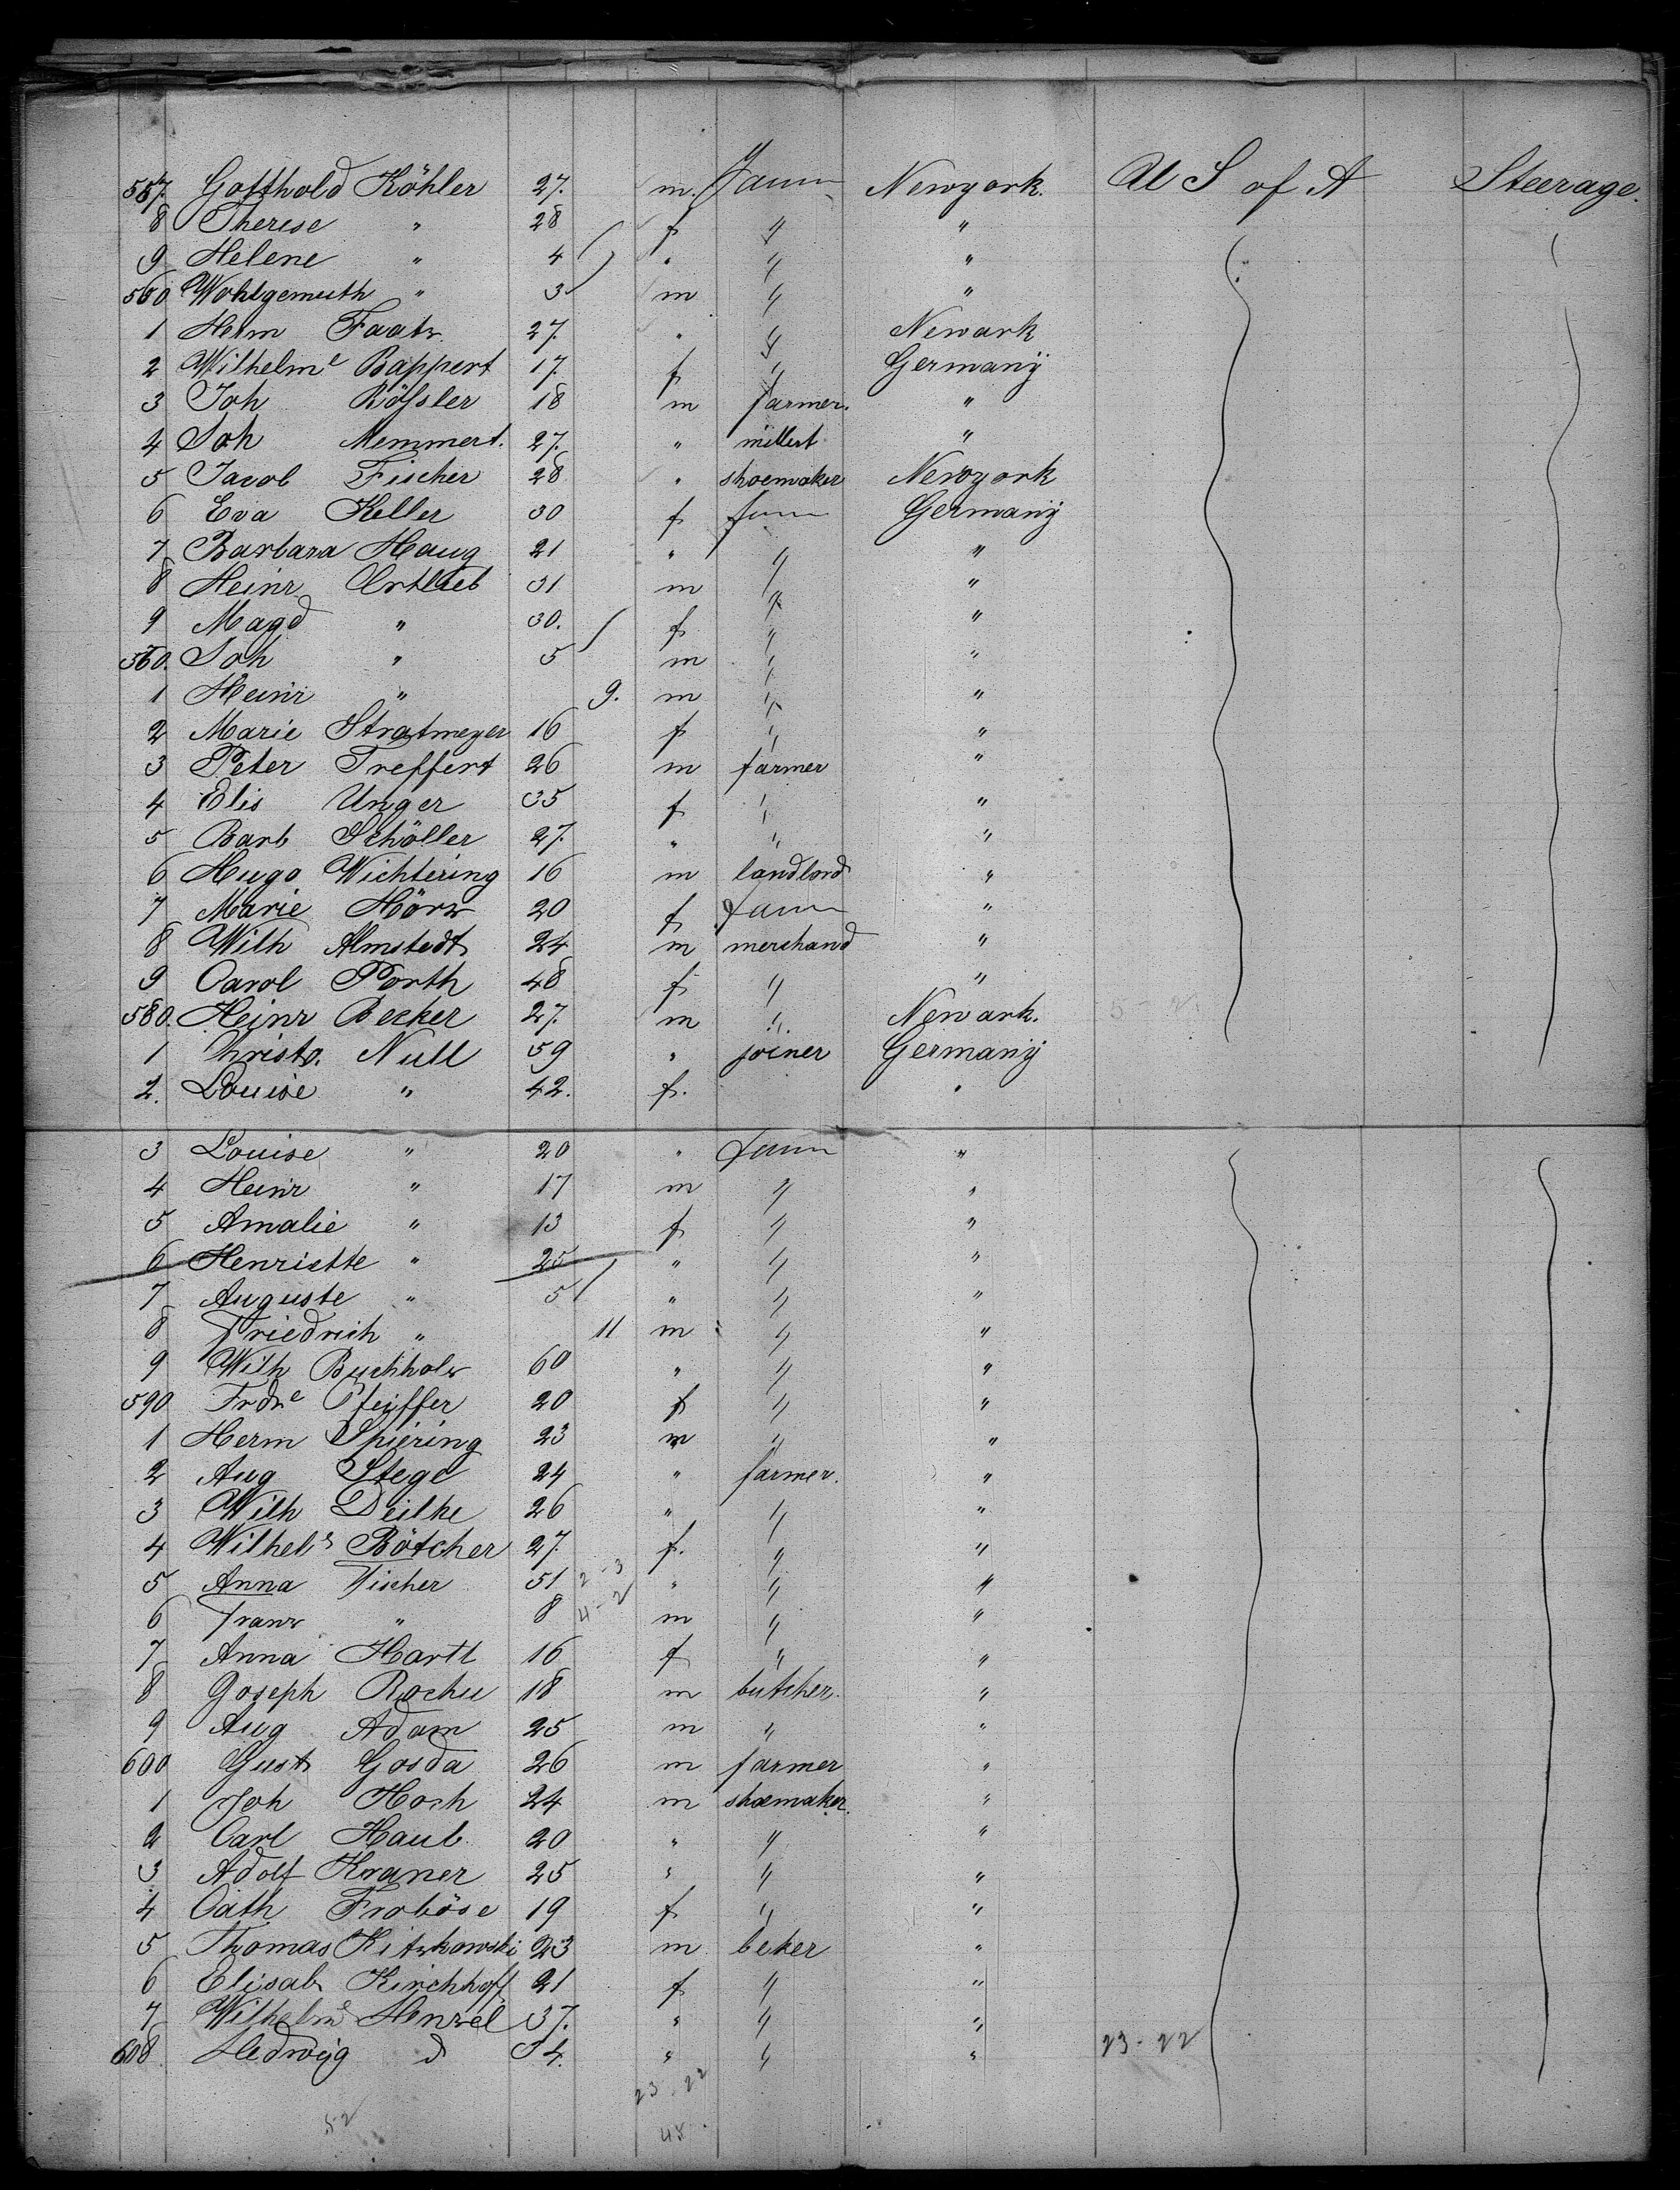 557. Gotthold Köhler 27. m. Newyork. U S of A Steerage.
8 Therese " 28 f " "
9 Helene " 4 " " "
560 Wohlgemuth " 3 m " "
1 Herm Faatz 27. " " Newark
2 Wilhelme Bappert 17 f " Germany
3 Joh Rößler 18 m farmer. "
4 Joh Memmert. 27. " "
5 Jacob Fischer 28 " shoemaker Newyork
6 Eva Keller 30 f Germany
7 Barbara Haug 21 " " "
8 Heinr Ortlieb 31 m " "
9 Magd " 30. f " "
570. Joh " 5 m " "
1 Heinr " 9. m " "
2 Marie Stratmeyer 16 f " "
3 Peter Treffert 26 m farmer "
4 Elis Unger 35 f " "
5 Barb Schöller 27. " " "
6 Hugo Wichtering 16 m landlord "
7 Marie Hörz 20 f "
8 Wilh Almstedt 24 m merchand "
9 Carol Porth 48 f " "
580. Heinr Becker 27. m " Newark.
1 Christo. Null 59 " joiner Germany
2. Louise " 42. f. "
3 Louise " 20 " "
4 Heinr " 17 m " "
5 Amalie " 13 f " "
6 Henriette " 25 " " "
7 Auguste " 5 " " "
8 Friedrich " 11 m " "
9 Wilh Buchholz 60 " " "
590 Frdre Pfeiffer 20 f " "
1 Herm Spiering 23 m " "
2 Aug Stege 24 " farmer. "
3 Wilh Deilke 26 " " "
4 Bötcher 27 f. " "
5 Anna Fischer 51 2-3 " " "
6 Franz " 8 4-2 m " "
7 Anna Hartl 16 f " "
8 Joseph 18 m butcher. "
9 Aug Adam 25 m " "
600 Gust Gosda 26 m farmer "
1 Joh Hoch 24 m shoemaker. "
2 Carl Haub 20 " " "
3 Adolf Kraner 25 " " "
4 Cath Froböse 19 f " "
5 Thomas Kitzkowski 23 m beker "
6 Elisab Kirchhoff 21 f " "
7 Wilhelme Henzel 37. " " "
608. Hedwig d " " " 23-22
23-22
52 48